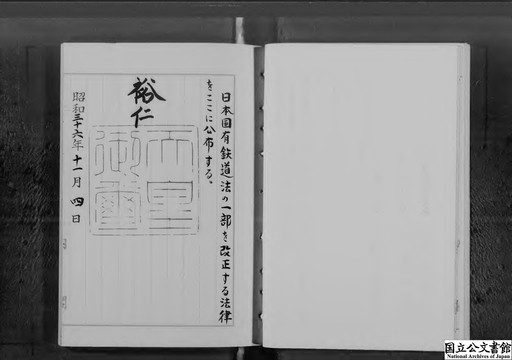 日本国有鉄道法の一部を改正する法律
をここに公布する。
裕仁
天皇
御璽
昭和三十六年十一月四日
国立公文書館
National Archives of Japan